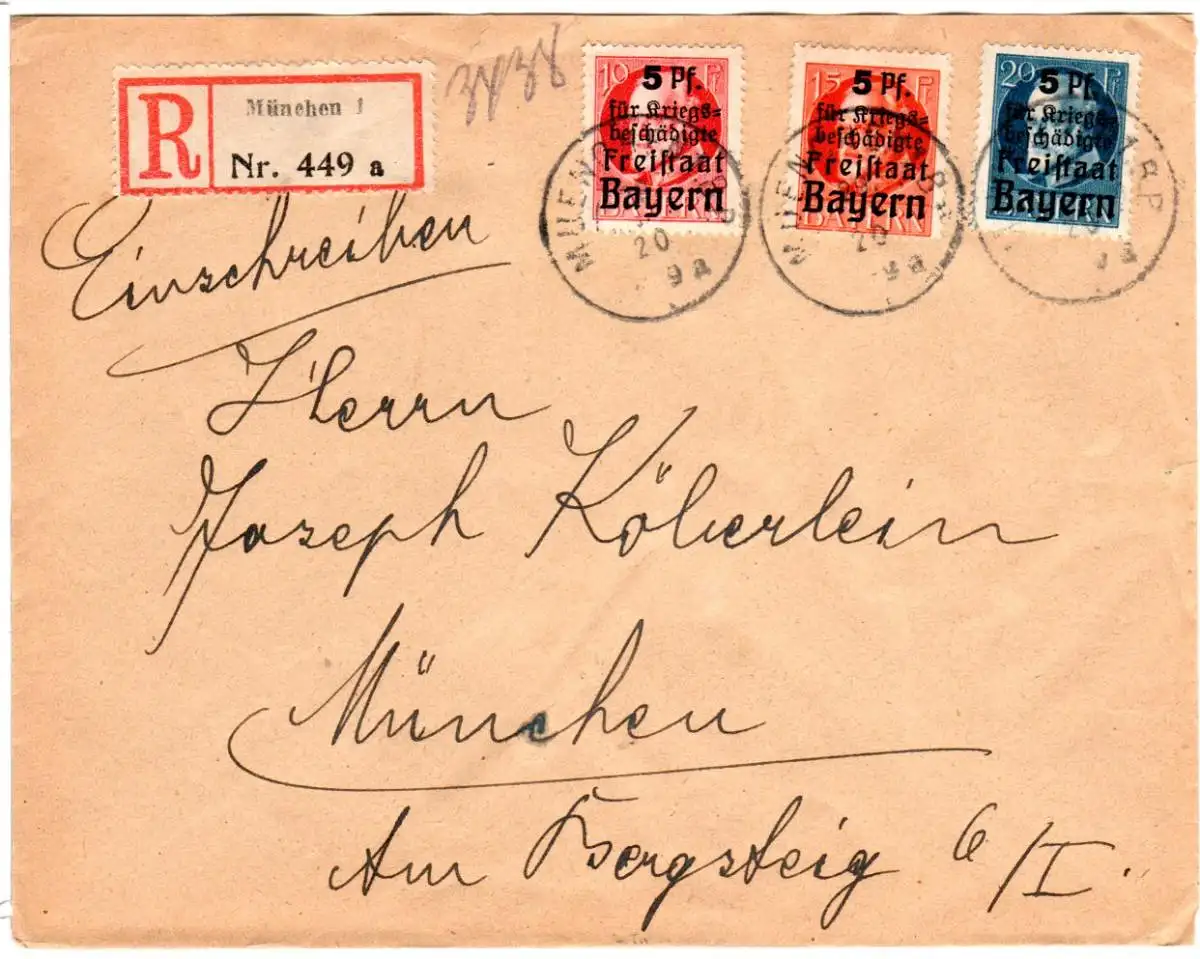 R
München 1
Nr. 449 a
3438
10 Pf
5 Pf.
für Kriegs=
beschädigte
Freistaat
Bayern
BAYERN
15 Pf
5 Pf.
für Kriegs=
beschädigte
Freistaat
Bayern
BAYERN
20 Pf
5 Pf.
für Kriegs=
beschädigte
Freistaat
Bayern
BAYERN
20
9a
20
9a
Einschreiben
Herrn
Joseph Köberlein
München
Am Bergsteig 6/I.